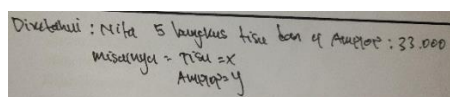 Diketahui : Nita 5 bungkus tisu dan 4 Amplop : 33.000
misalnya = Tisu = x
Amplop = y